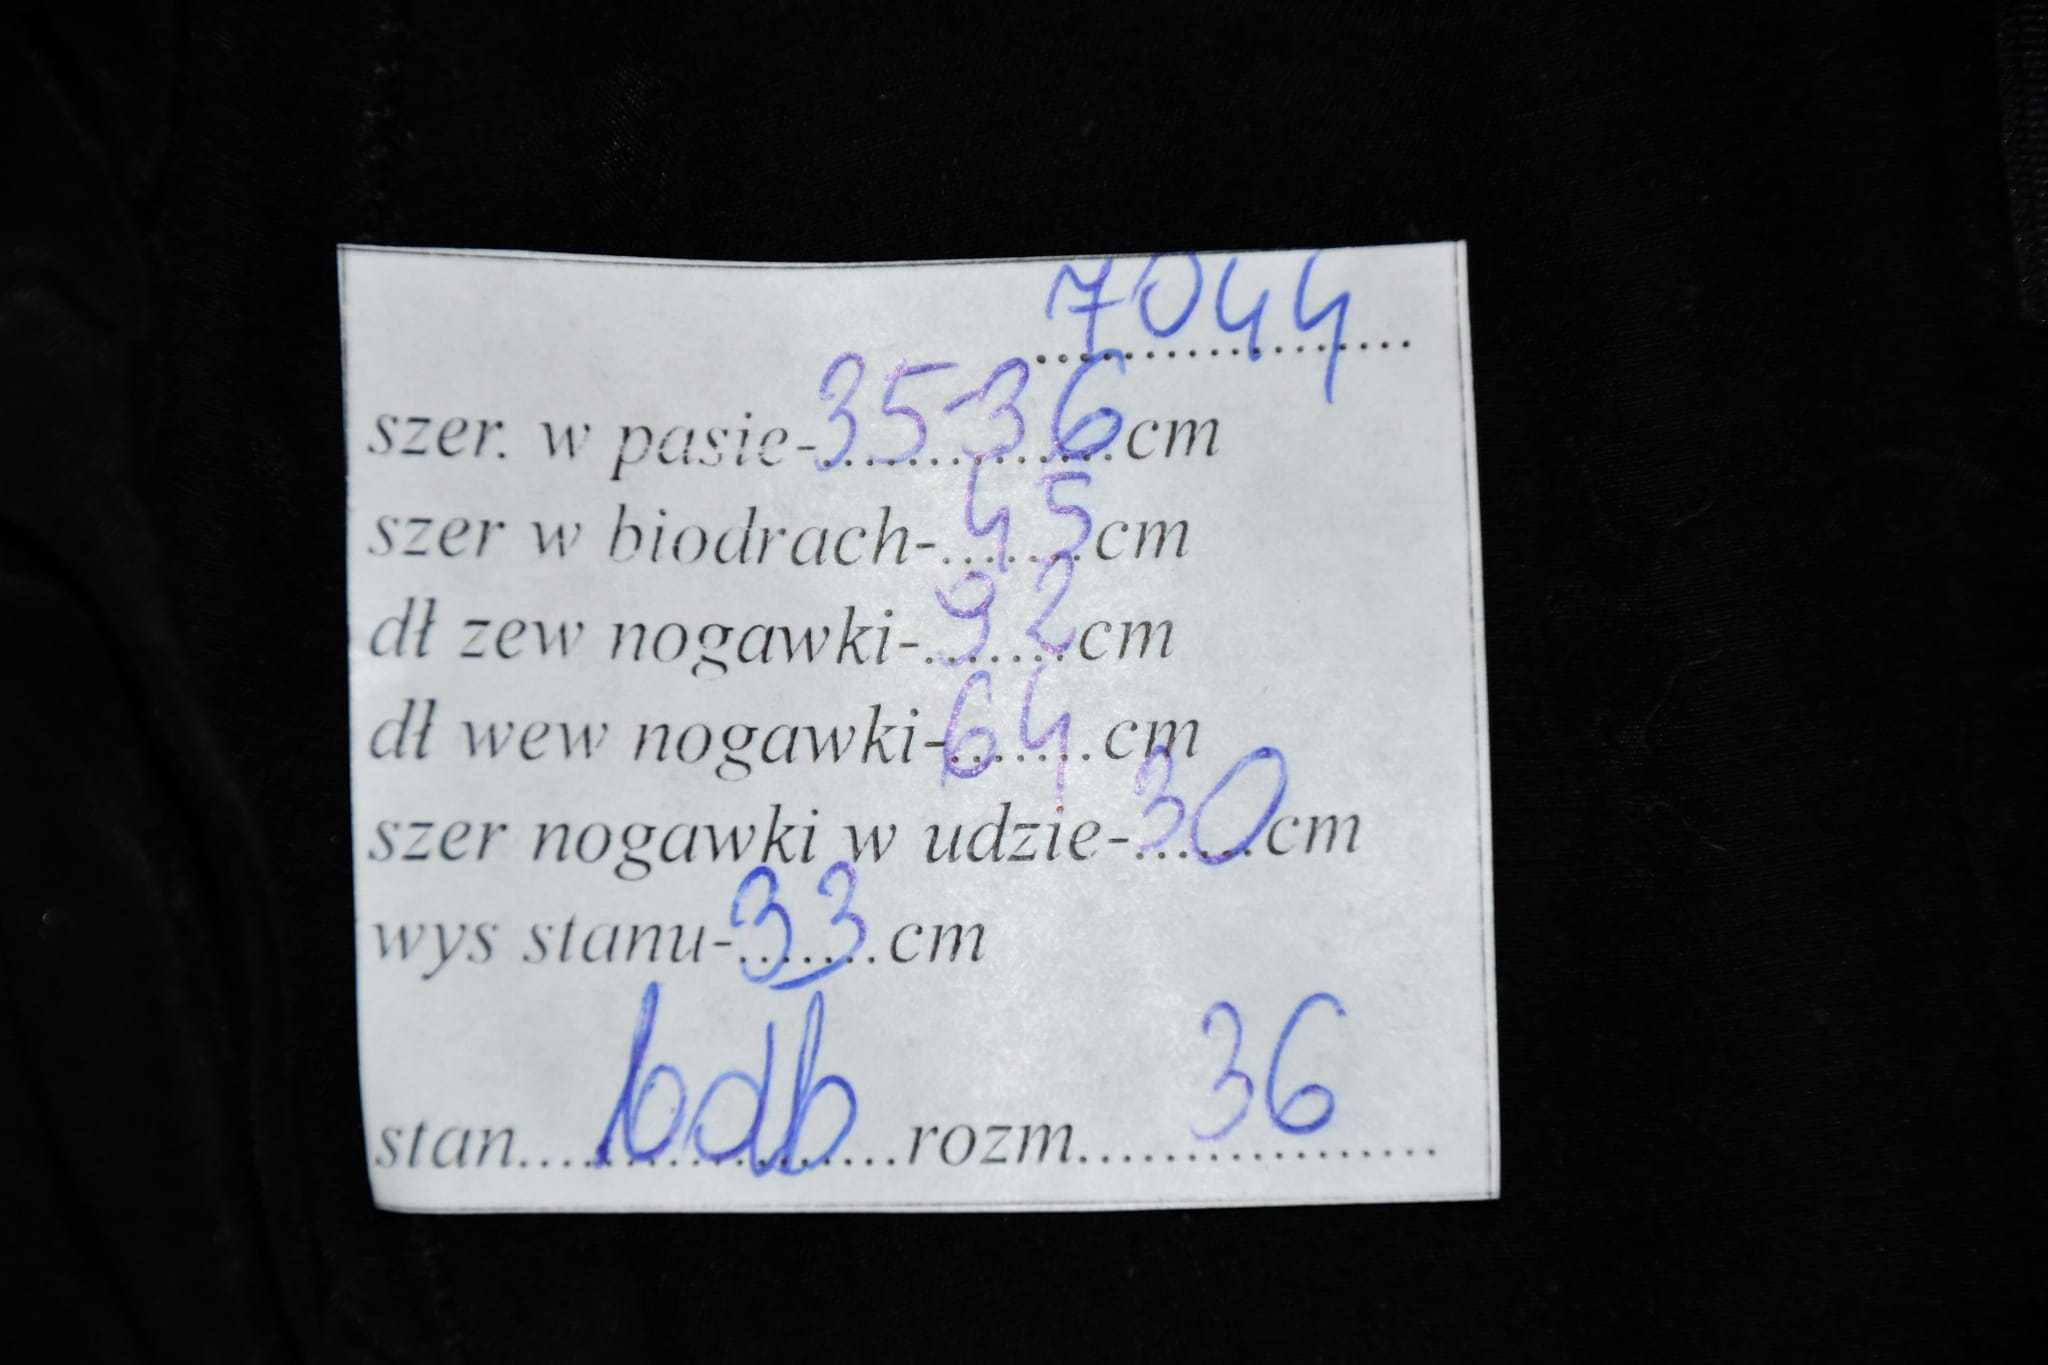 7044
szer. w pasie-35-36cm
szer w biodrach-45cm
dł zew nogawki-92cm
dł wew nogawki-64cm
szer nogawki w udzie-30cm
wys stanu-33cm
stan....bdb....rozm....36....